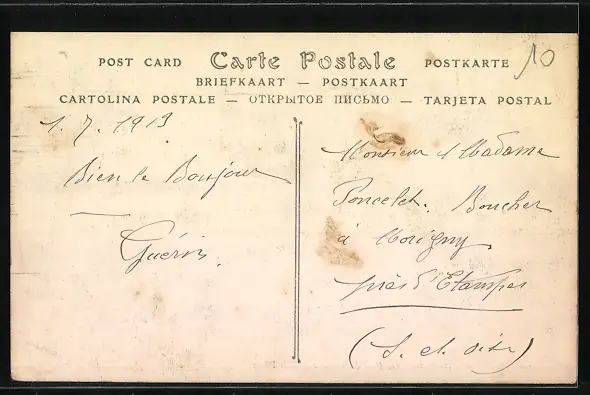 POST CARD Carte Postale POSTKARTE
BRIEFKAART — POSTKAART
CARTOLINA POSTALE — ОТКРЫТОЕ ПИСЬМО — TARJETA POSTAL
10
1. 7. 1913
Bien le Bonjour
Guérin.
Monsieur & Madame
Poncelet. Boucher
à Morigny
près d'Etampes
(S. et Oise)